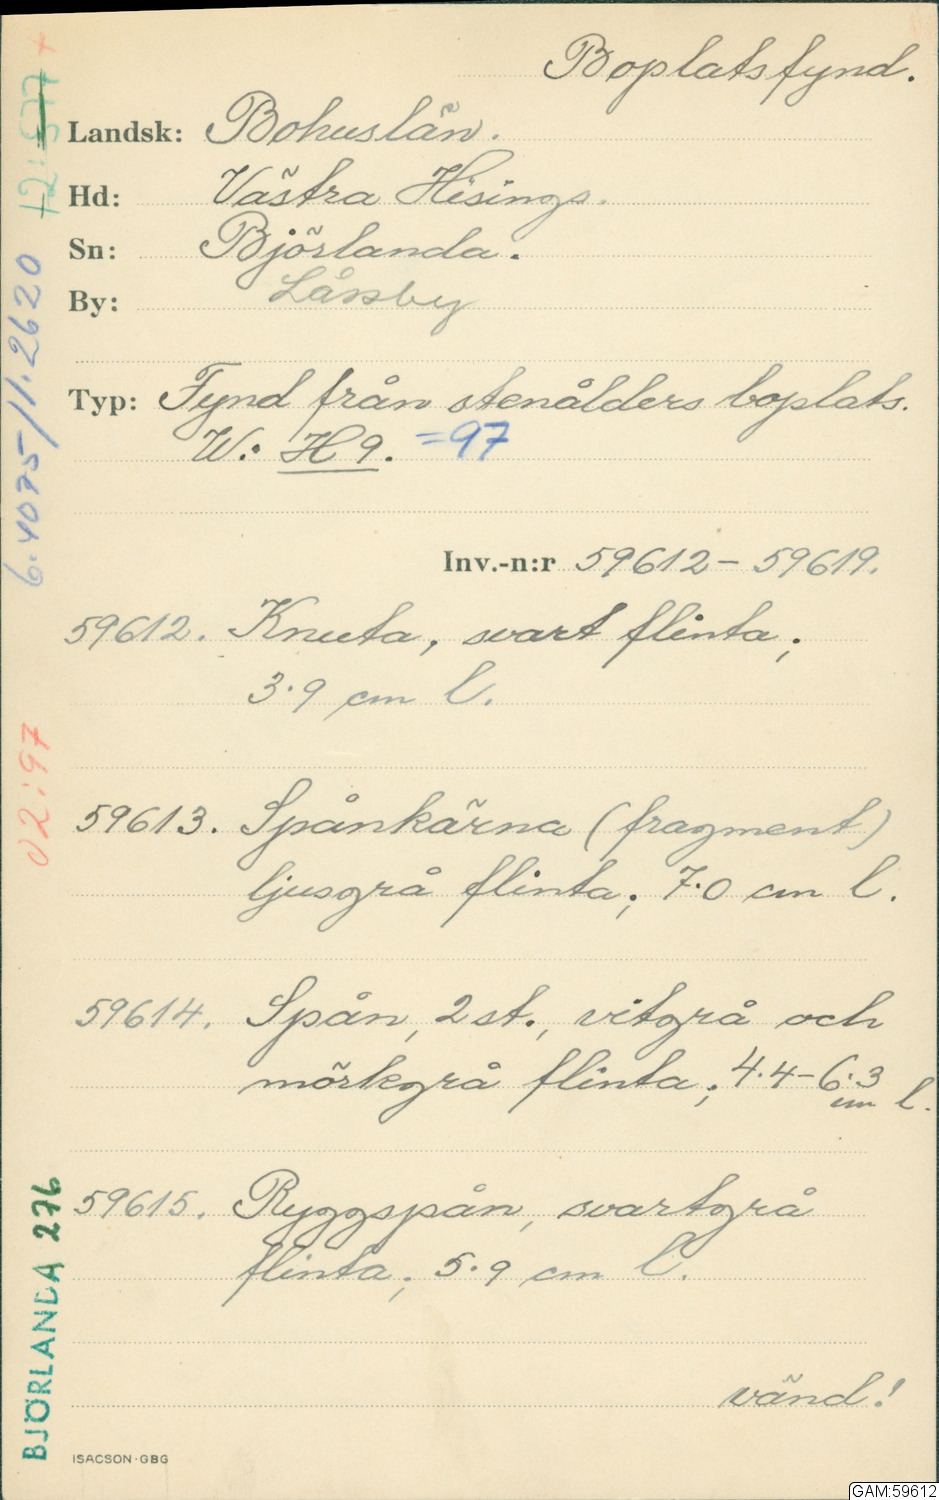 Boplatsfynd.
Landsk: Bohuslän.
Hd: Västra Hisings.
Sn: Björlanda.
By: Låssby
Typ: Fynd från stenålders boplats.
W: H 9. =97
Inv.-n:r 59612 – 59619.
59612. Knuta, svart flinta;
3.9 cm l.
59613. Spånkärna (fragment)
ljusgrå flinta; 7.0 cm l.
59614. Spån, 2 st., vitgrå och
mörkgrå flinta; 4.4–6.3
cm l.
59615. Ryggspån, svartgrå
flinta; 5.9 cm l.
vänd!
ISACSON·GBG
BJÖRLANDA 276
02:97
6.4075/11.2620
GAM:59612